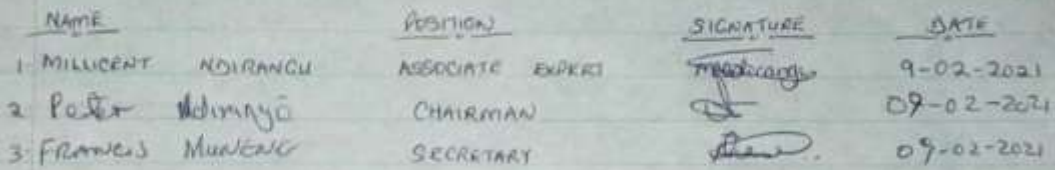 NAME POSITION SIGNATURE DATE
1. MILLICENT NDIRANGU ASSOCIATE EXPERT 9-02-2021
2 CHAIRMAN 09-02-2021
3. FRANCIS MUNENG SECRETARY 09-02-2021